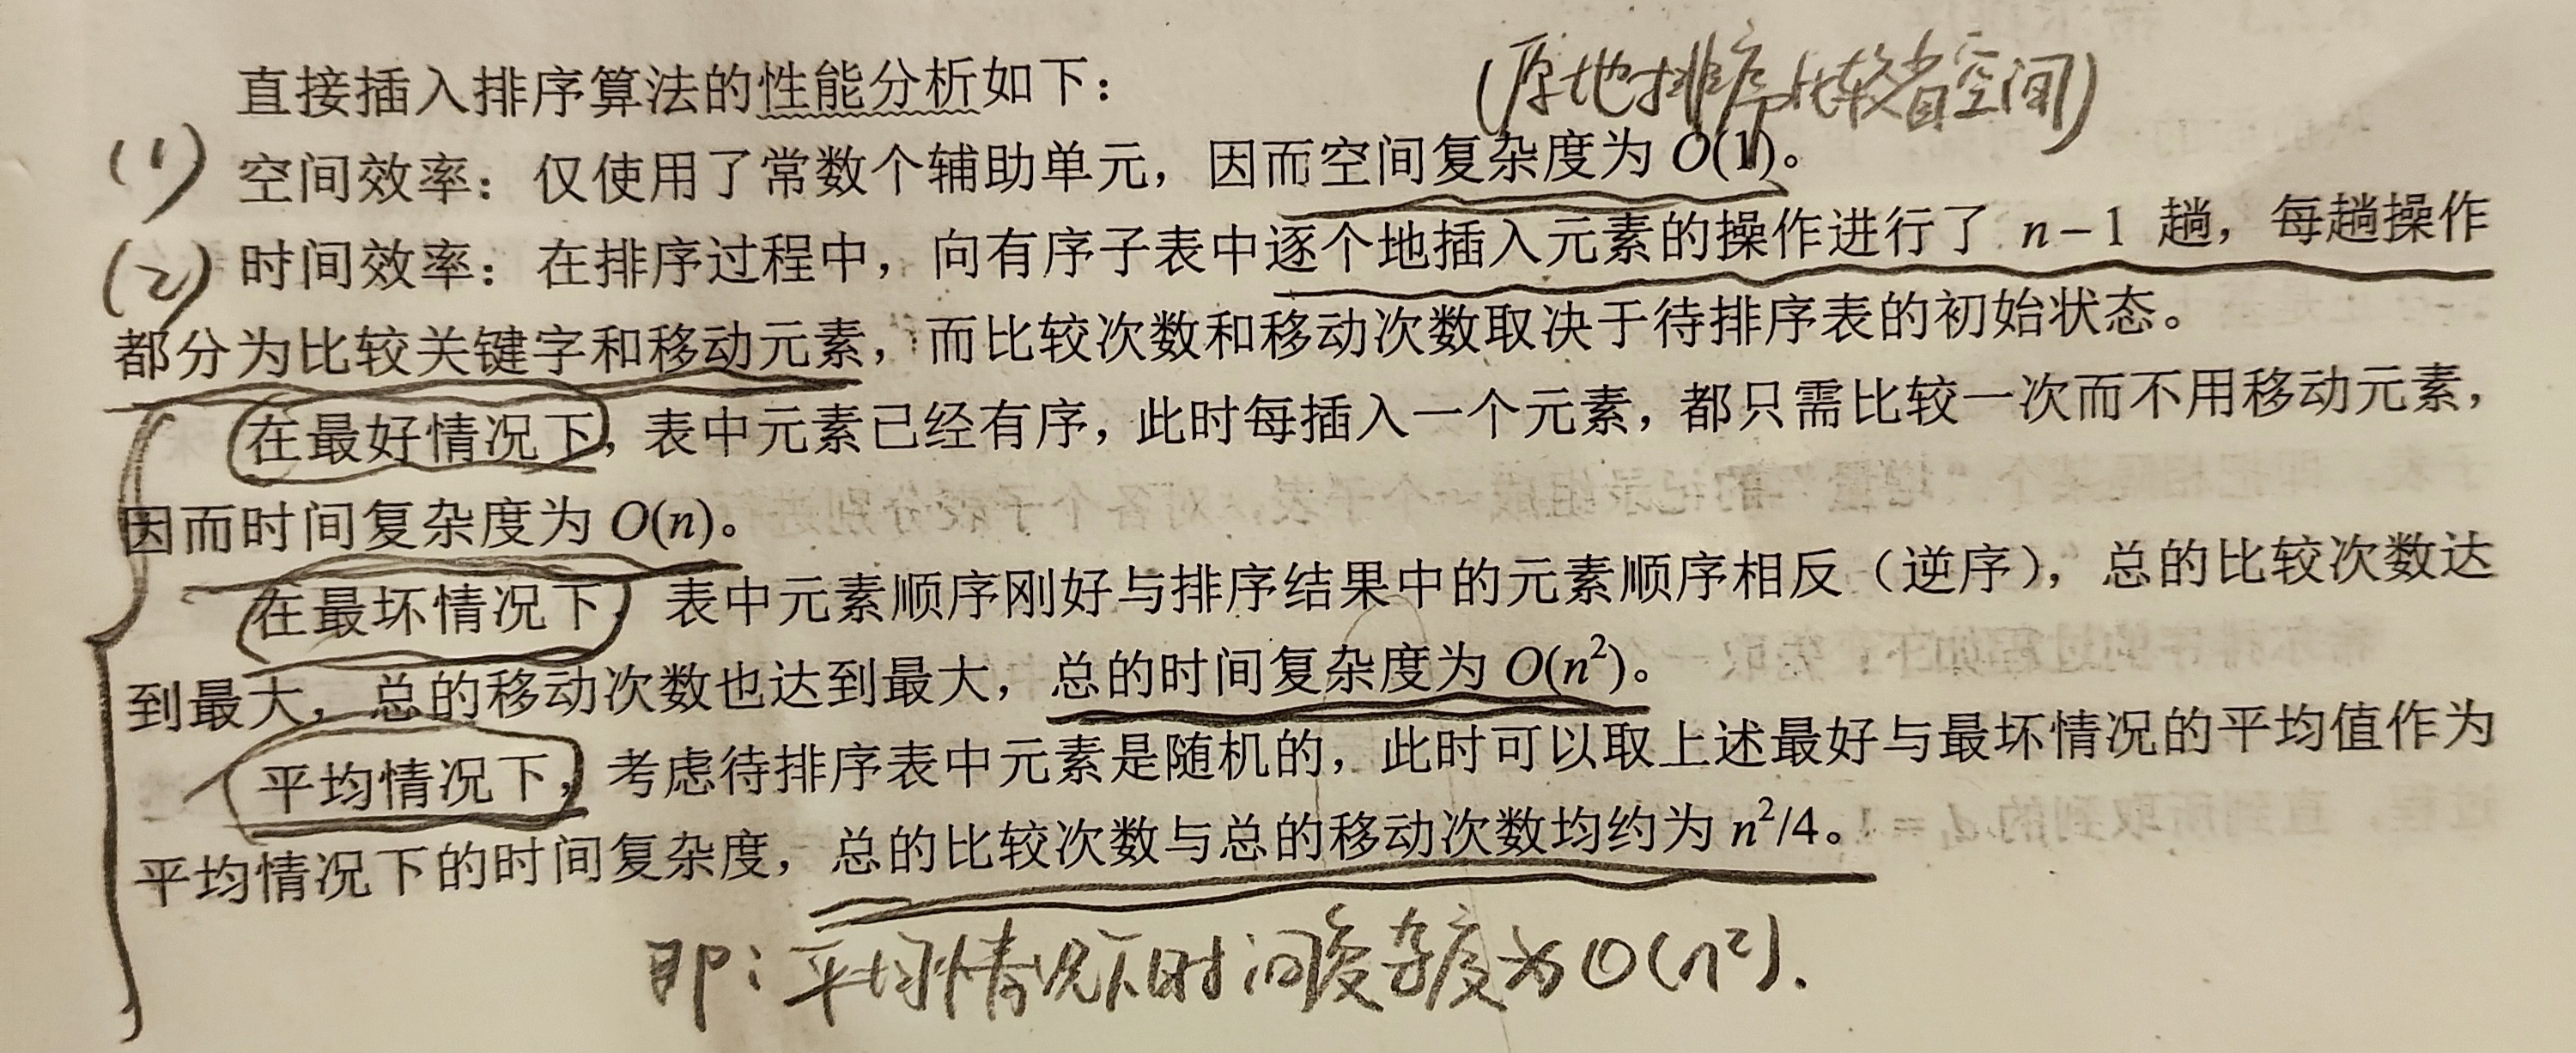 (原地排序,比较省空间)
直接插入排序算法的性能分析如下：
(1) 空间效率：仅使用了常数个辅助单元，因而空间复杂度为 O(1)。
(2) 时间效率：在排序过程中，向有序子表中逐个地插入元素的操作进行了 n−1 趟，每趟操作
都分为比较关键字和移动元素，而比较次数和移动次数取决于待排序表的初始状态。
在最好情况下，表中元素已经有序，此时每插入一个元素，都只需比较一次而不用移动元素，
因而时间复杂度为 O(n)。
在最坏情况下，表中元素顺序刚好与排序结果中的元素顺序相反（逆序），总的比较次数达
到最大，总的移动次数也达到最大，总的时间复杂度为 O(n²)。
平均情况下，考虑待排序表中元素是随机的，此时可以取上述最好与最坏情况的平均值作为
平均情况下的时间复杂度，总的比较次数与总的移动次数均约为 n²/4。
即：平均情况下时间复杂度为O(n²).